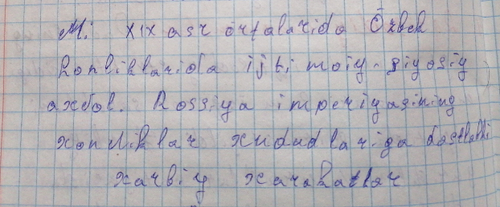 M: XIX asr o'rtalarida Özbek
honliklarida ijtimoiy-siyosiy
axvol. Rossiya imperiyasining
xonliklar xududlariga dastlabki
xarbiy xarakatlar